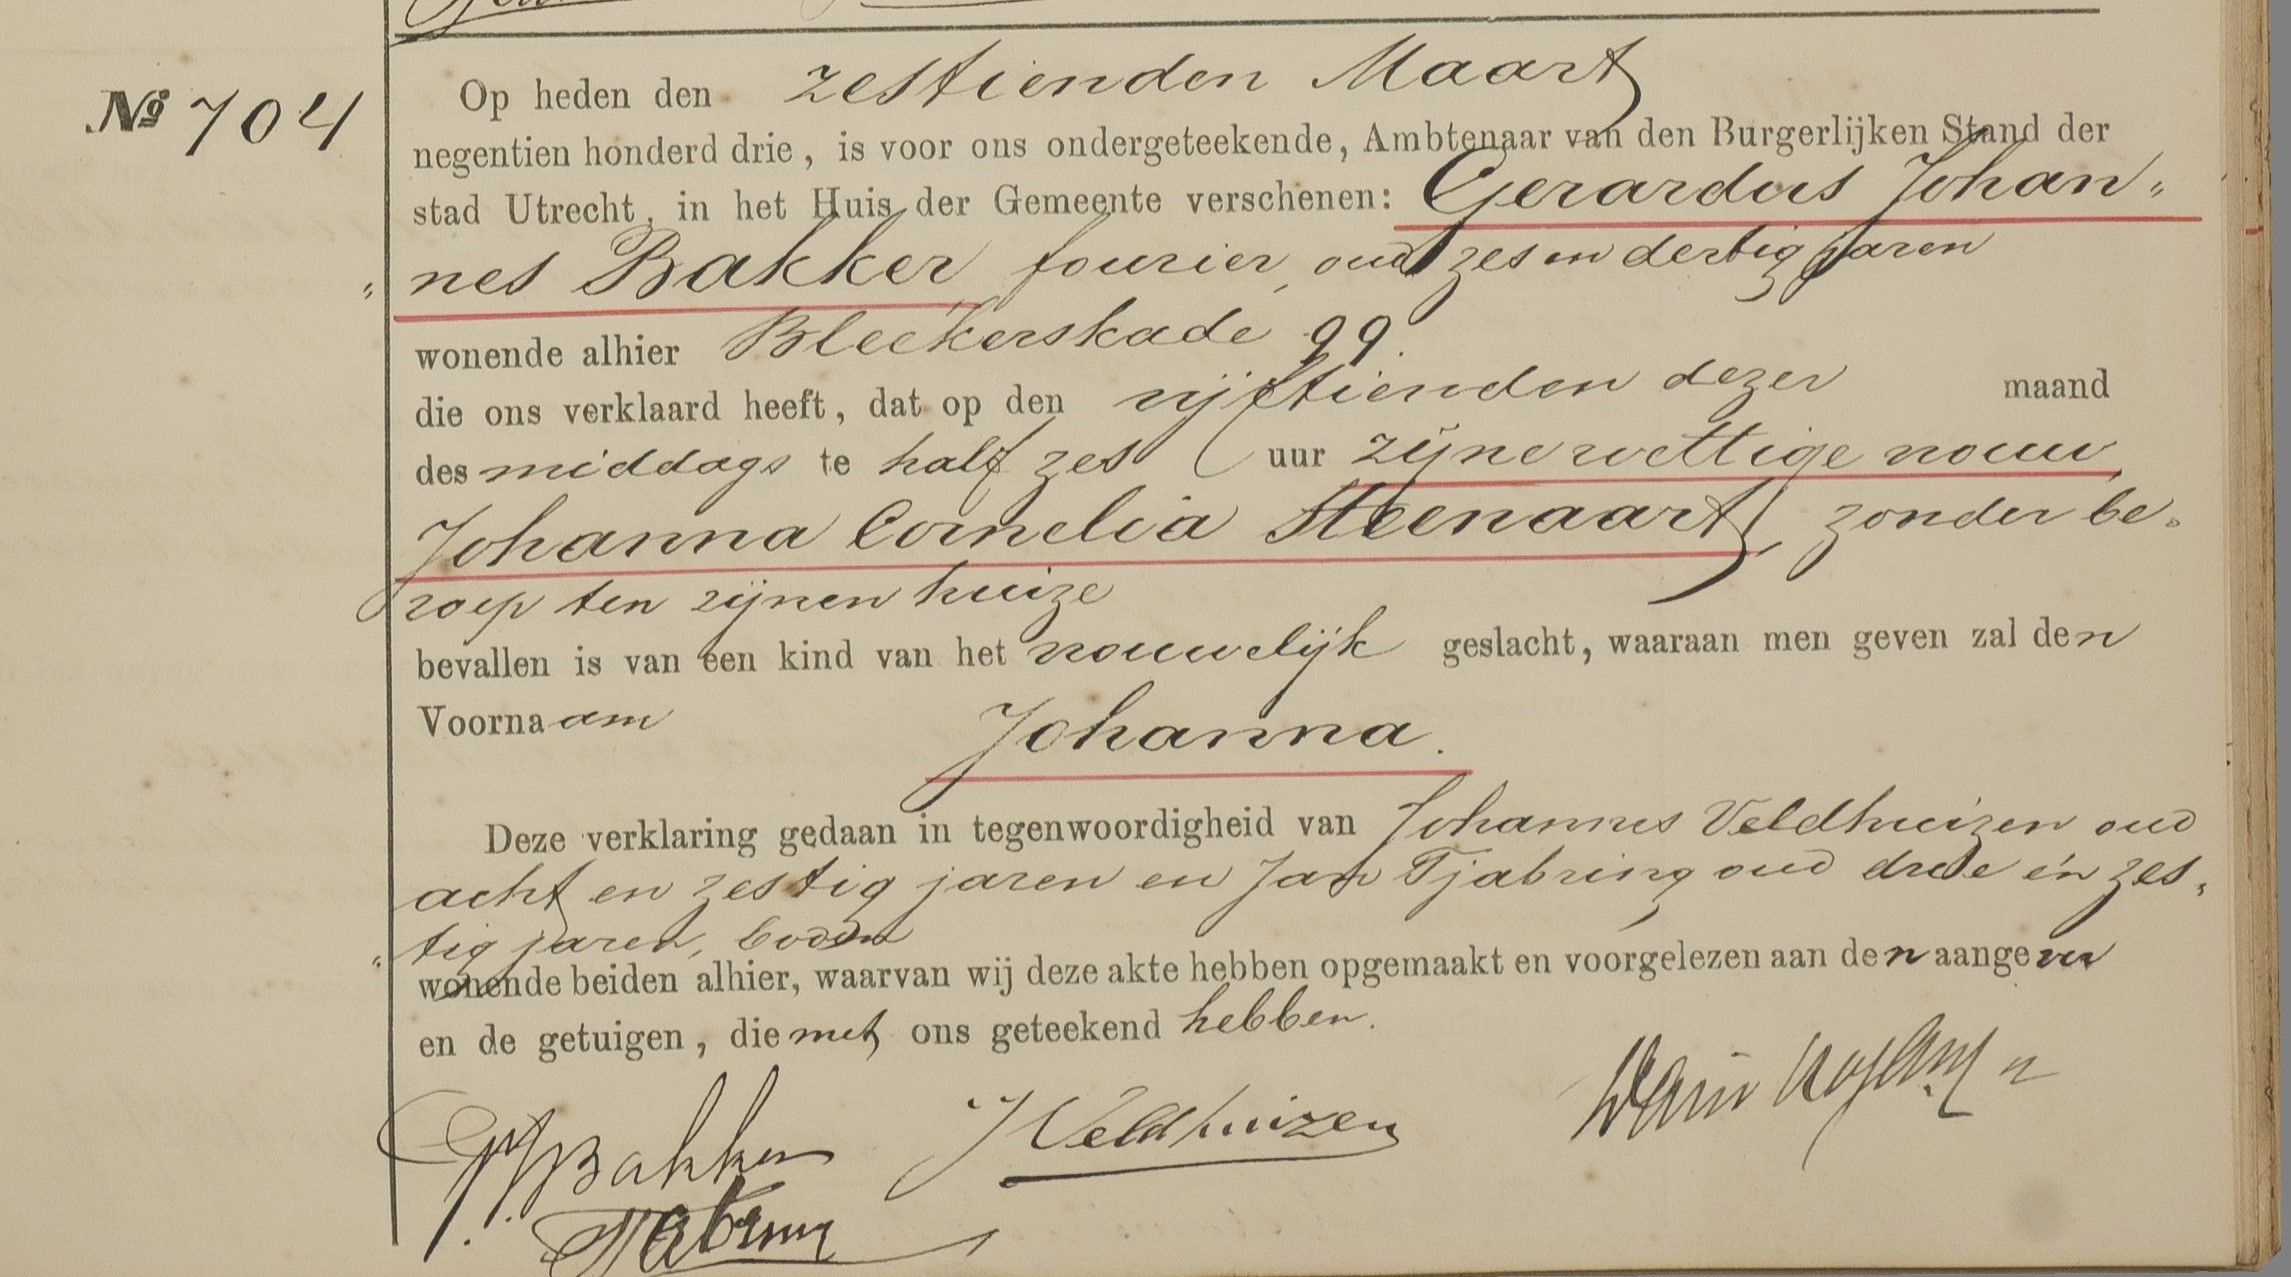 Nº 704
Op heden den zestienden Maart
negentien honderd drie, is voor ons ondergeteekende, Ambtenaar van den Burgerlijken Stand der
stad Utrecht, in het Huis der Gemeente verschenen: Gerardus Johan„
„nes Bakker fourier, oud zes en dertig jaren
wonende alhier Bleekerskade 99.
die ons verklaard heeft, dat op den vijftienden dezer maand
des middags te half zes uur zijne wettige vrouw,
Johanna Cornelia Steenaart, zonder be„
roep ten zijnen huize
bevallen is van een kind van het vrouwelijk geslacht, waaraan men geven zal den
Voornaam Johanna.
Deze verklaring gedaan in tegenwoordigheid van Johannes Veldhuizen oud
acht en zestig jaren en Jan Tjabring oud drie én zes„
„tig jaren, boden
wonende beiden alhier, waarvan wij deze akte hebben opgemaakt en voorgelezen aan den aangever
en de getuigen, die met ons geteekend hebben.
GJBakker JVeldhuizen